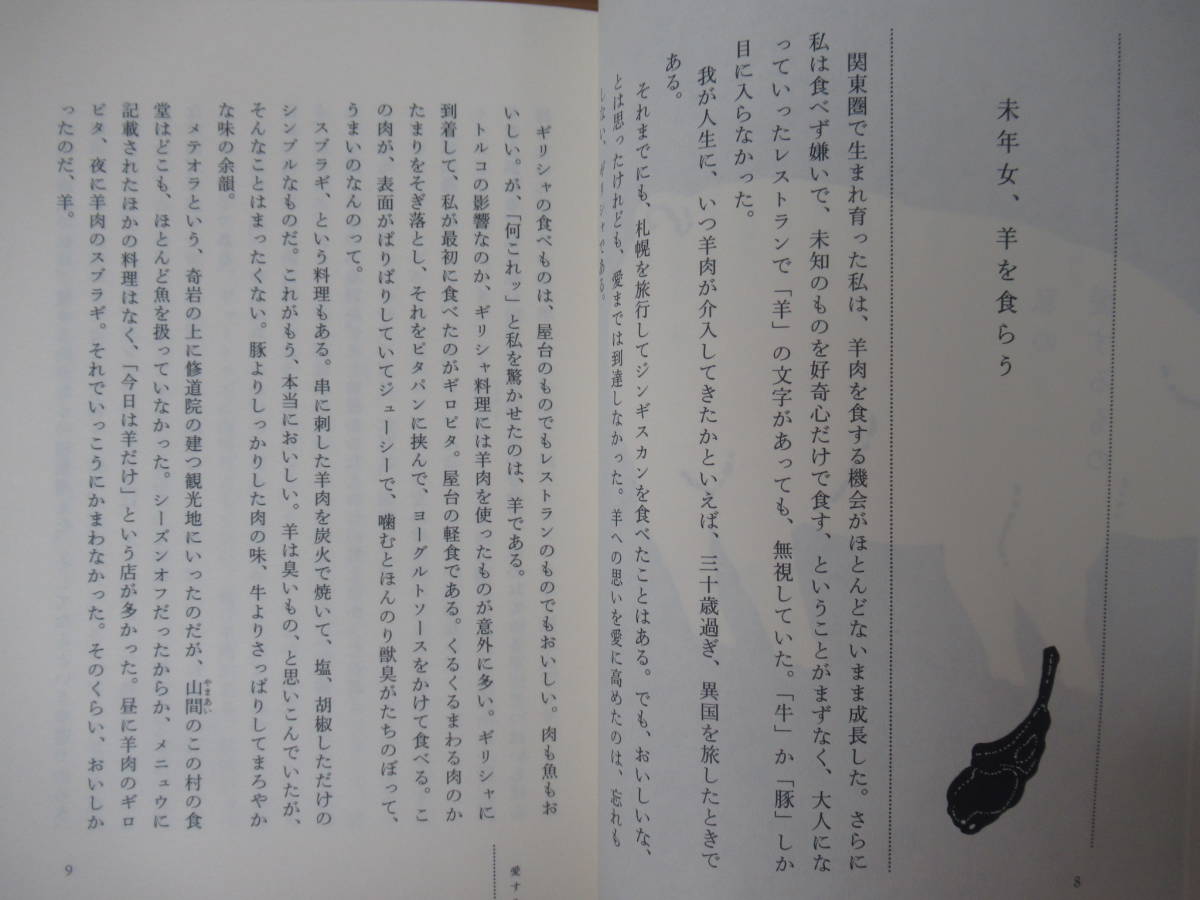 未年女、羊を食らう
関東圏で生まれ育った私は、羊肉を食する機会がほとんどないまま成長した。さらに
私は食べず嫌いで、未知のものを好奇心だけで食す、ということがまずなく、大人にな
っていったレストランで「羊」の文字があっても、無視していた。「牛」か「豚」しか
目に入らなかった。
我が人生に、いつ羊肉が介入してきたかといえば、三十歳過ぎ、異国を旅したときで
ある。
それまでにも、札幌を旅行してジンギスカンを食べたことはある。でも、おいしいな、
とは思ったけれども、愛までは到達しなかった。羊への思いを愛に高めたのは、忘れも
しない、ギリシャである。
8
ギリシャの食べものは、屋台のものでもレストランのものでもおいしい。肉も魚もお
いしい。が、「何これッ」と私を驚かせたのは、羊である。
トルコの影響なのか、ギリシャ料理には羊肉を使ったものが意外に多い。ギリシャに
到着して、私が最初に食べたのがギロピタ。屋台の軽食である。くるくるまわる肉のか
たまりをそぎ落とし、それをピタパンに挟んで、ヨーグルトソースをかけて食べる。こ
の肉が、表面がぱりぱりしていてジューシーで、噛むとほんのり獣臭がたちのぼって、
うまいのなんのって。
スブラギ、という料理もある。串に刺した羊肉を炭火で焼いて、塩、胡椒しただけの
シンプルなものだ。これがもう、本当においしい。羊は臭いもの、と思いこんでいたが、
そんなことはまったくない。豚よりしっかりした肉の味、牛よりさっぱりしてまろやか
な味の余韻。
メテオラという、奇岩の上に修道院の建つ観光地にいったのだが、山間のこの村の食
やまあい
堂はどこも、ほとんど魚を扱っていなかった。シーズンオフだったからか、メニュウに
記載されたほかの料理はなく、「今日は羊だけ」という店が多かった。昼に羊肉のギロ
ピタ、夜に羊肉のスブラギ。それでいっこうにかまわなかった。そのくらい、おいしか
ったのだ、羊。
愛す
9